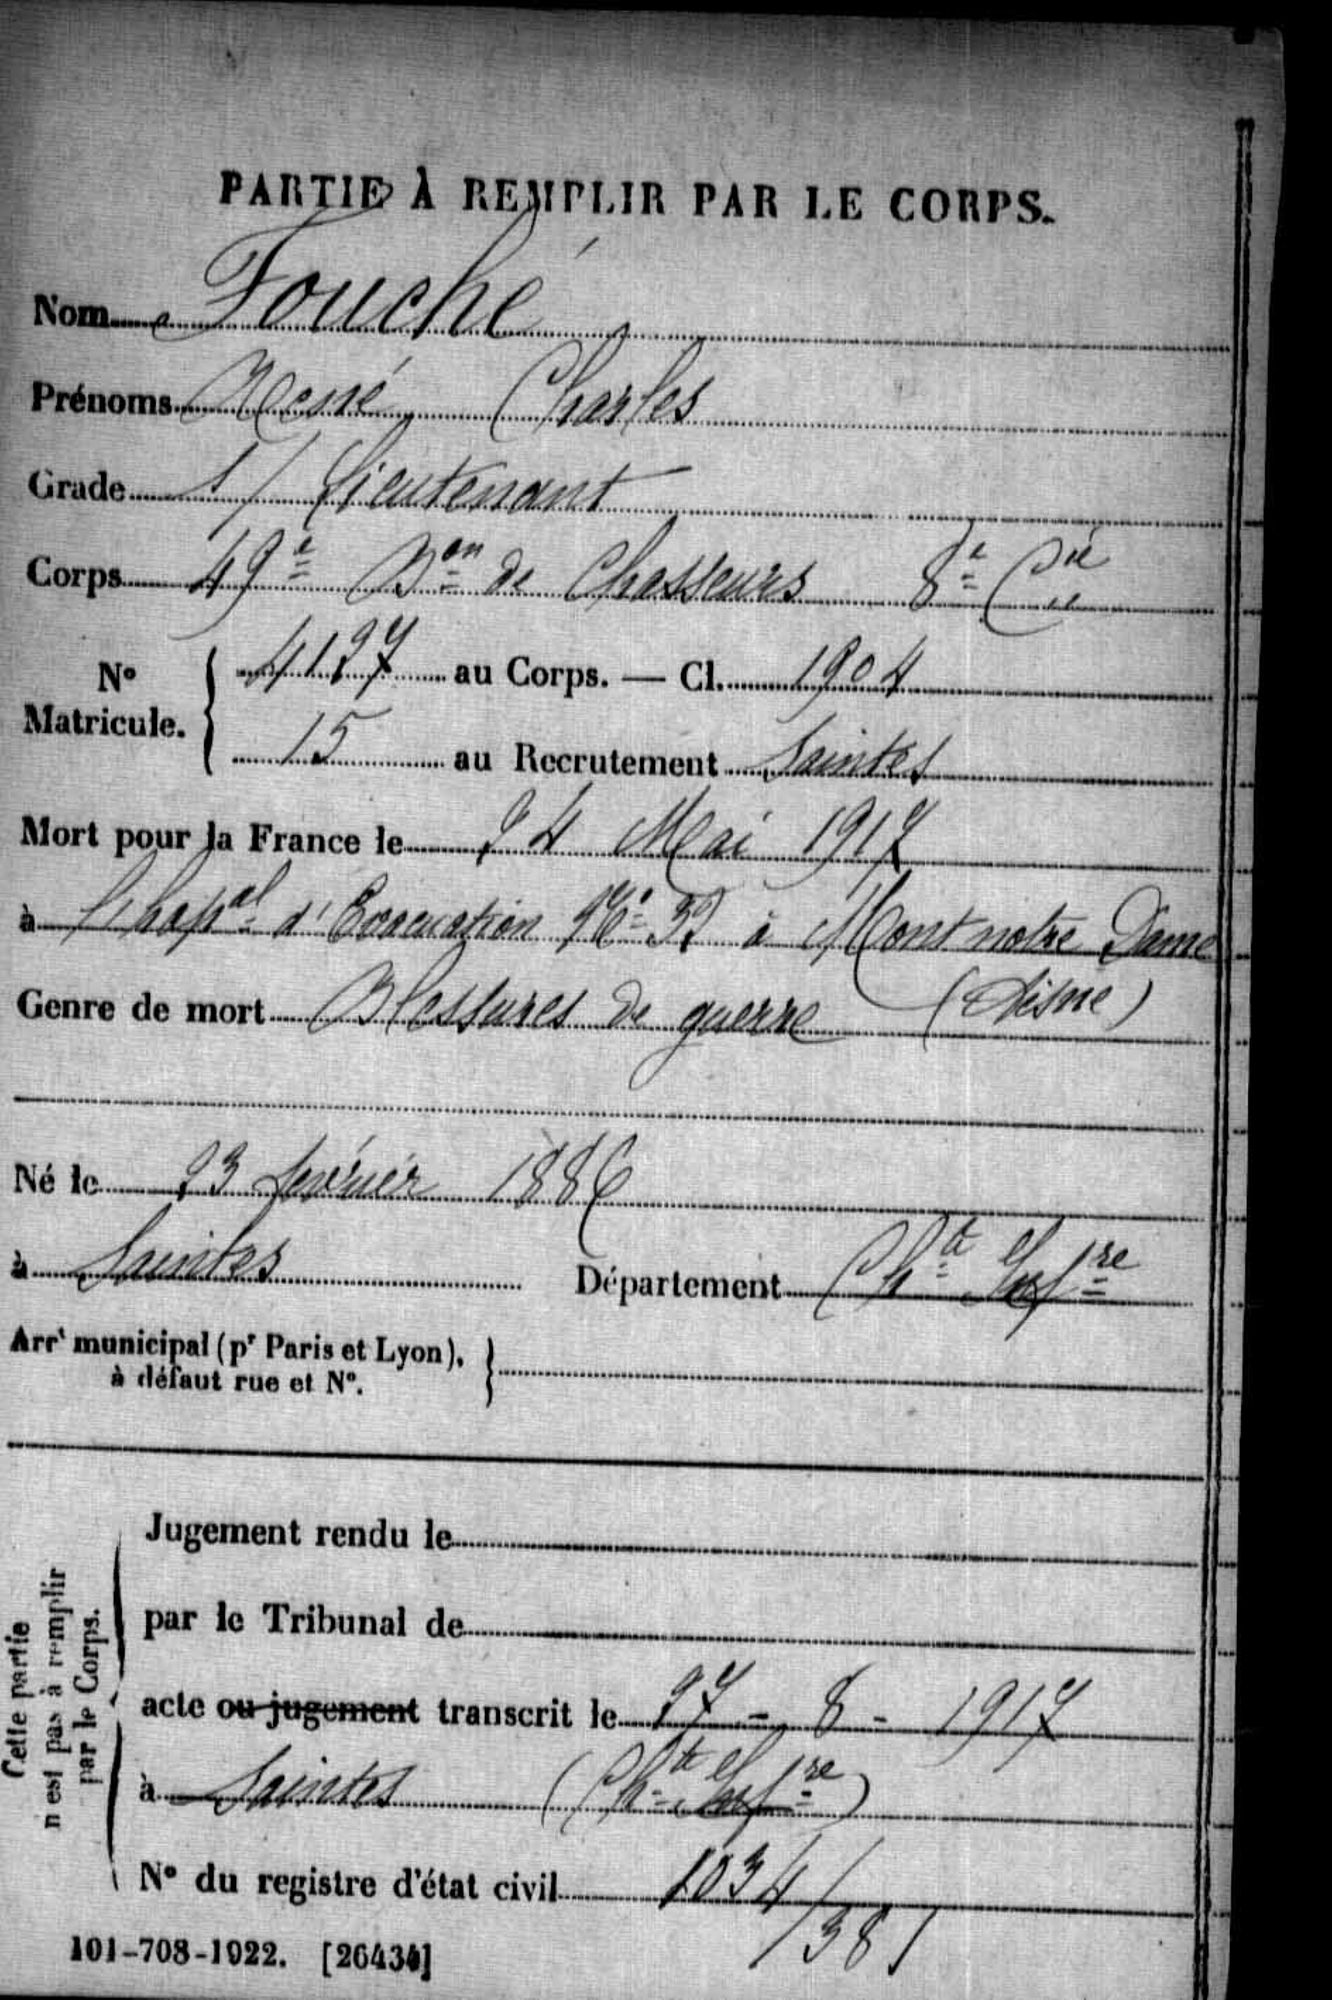 PARTIE À REMPLIR PAR LE CORPS.
Nom Fouché
Prénoms René Charles
Grade S/ Lieutenant
Corps 49e Bon de Chasseurs 8e Cie
No Matricule. { 4127 au Corps. — Cl. 1904
15 au Recrutement Saintes
Mort pour la France le 24 Mai 1917
à l'hopal d'Evacuation No 32 à Mont notre Dame
(Aisne)
Genre de mort Blessures de guerre
Né le 23 février 1886
à Saintes Département Chte Infre
Arrt municipal (pr Paris et Lyon), à défaut rue et No. }
Cette partie n'est pas à remplir par le Corps.
Jugement rendu le
par le Tribunal de
acte ou jugement transcrit le 27 - 8 - 1917
à Saintes (Chte Infre)
No du registre d'état civil 1034/381
101-708-1922. [26434]